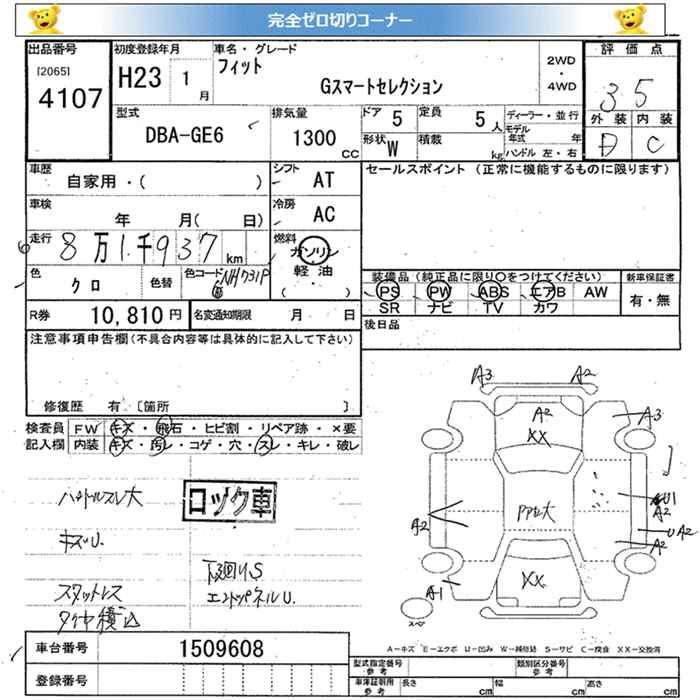 完全ゼロ切りコーナー
出品番号 初度登録年月 車名・グレード 評価点
[2065] フィット 2WD
4107 H23 1月 Gスマートセレクション ・ 4WD 3 5
型式 排気量 ドア 5 定員 5人 ディーラー・並行 外装 内装
DBA-GE6 1300CC 形状 W 積載 kg モデル年式 年 D C
ハンドル 左・右
車歴 自家用・( ) シフト AT セールスポイント (正常に機能するものに限ります)
車検 年 月( 日) 冷房 AC
走行 8万1千937km 燃料 ガソリン
軽油
( )
色 クロ 色替 色コード NH731P 装備品 (純正品に限り○をつけてください) 新車保証書
PS PW ABS エアB AW 有・無
SR ナビ TV カワ
R券 10,810円 名変通知期限 月 日 後日品
注意事項申告欄(不具合内容等は具体的に記入して下さい)
修復歴 有〔箇所 〕
検査員 FW キズ・飛石・ヒビ割・リペア跡・×要
記入欄 内装 キズ・汚レ・コゲ・穴・スレ・キレ・破レ
ハンドルスレ大 ロック車
キズU.
下回りS
スタットレス エンドパネルU.
タイヤ積込
A3 A2
A2 A3
XX
U1
A2 PPヒ大 A2
UA2
A2
A1 XX
スペア
A-キズ E-エクボ U-凹み W-補修跡 S-サビ C-腐食 XX-交換済
車台番号 1509608
登録番号
型式指定番号 参考 類別区分番号 参考
車庫証明用 参考 長さ cm 幅 cm 高さ cm